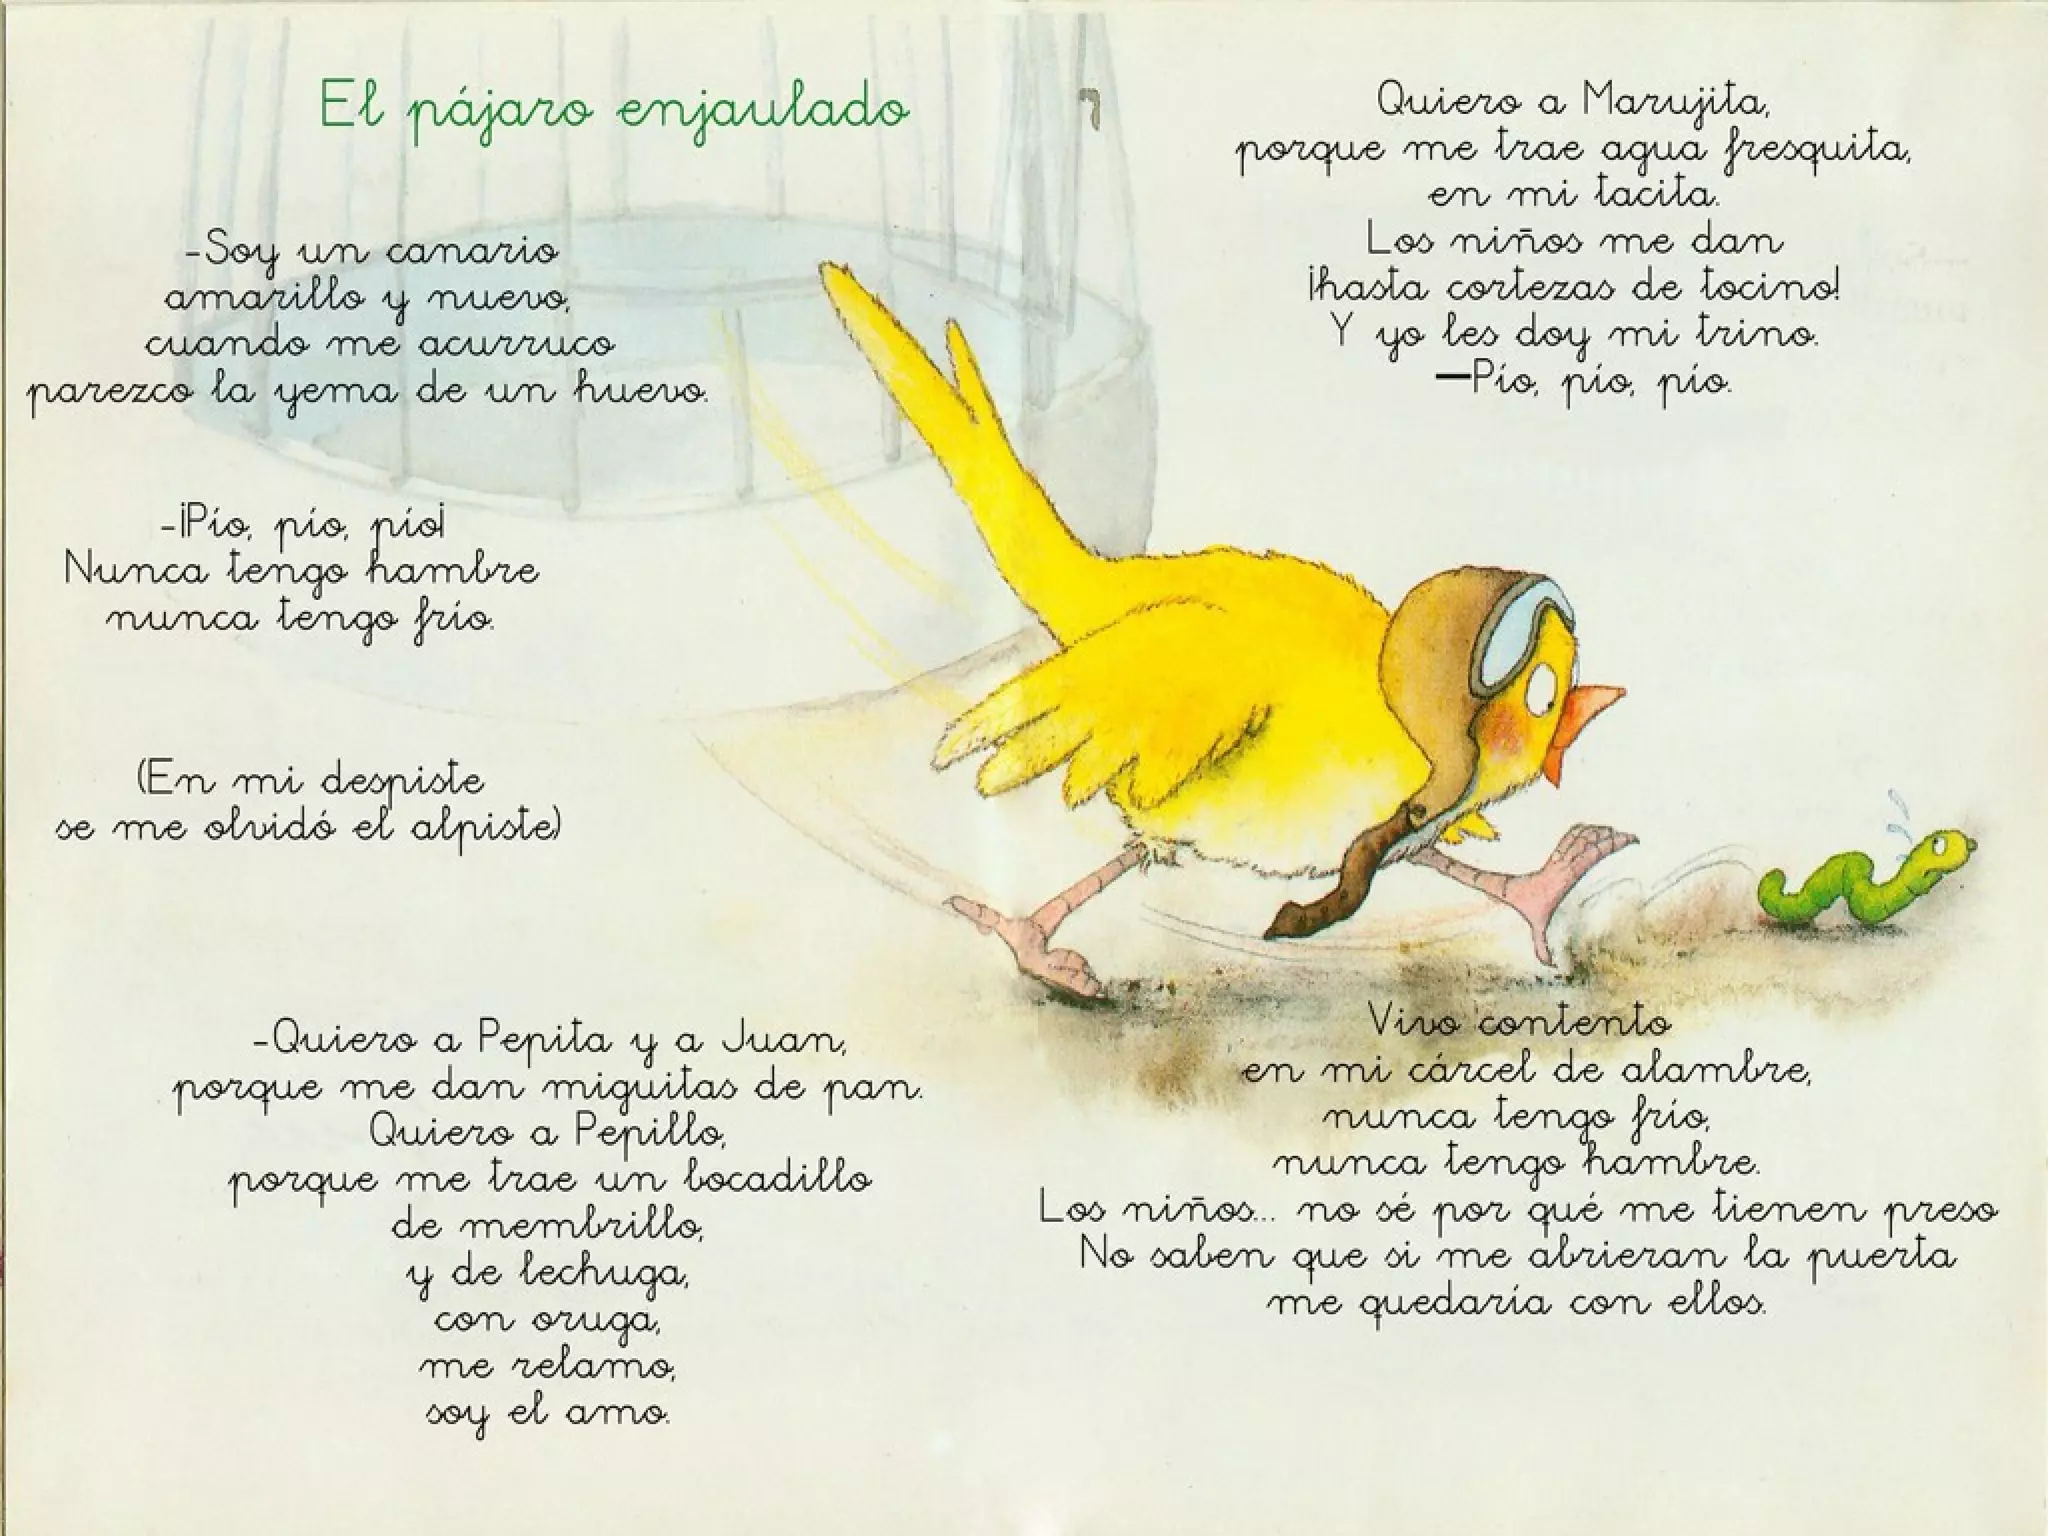 El pájaro enjaulado
-Soy un canario
amarillo y nuevo,
cuando me acurruco
parezco la yema de un huevo.
-¡Pío, pío, pío¡
Nunca tengo hambre
nunca tengo frío.
(En mi despiste
se me olvidó el alpiste)
-Quiero a Pepita y a Juan,
porque me dan miguitas de pan.
Quiero a Pepillo,
porque me trae un bocadillo
de membrillo,
y de lechuga,
con oruga,
me relamo,
soy el amo.
Quiero a Marujita,
porque me trae agua fresquita,
en mi tacita.
Los niños me dan
¡hasta cortezas de tocino!
Y yo les doy mi trino.
—Pío, pío, pío.
Vivo contento
en mi cárcel de alambre,
nunca tengo frío,
nunca tengo hambre.
Los niños... no sé por qué me tienen preso
No saben que si me abrieran la puerta
me quedaría con ellos.